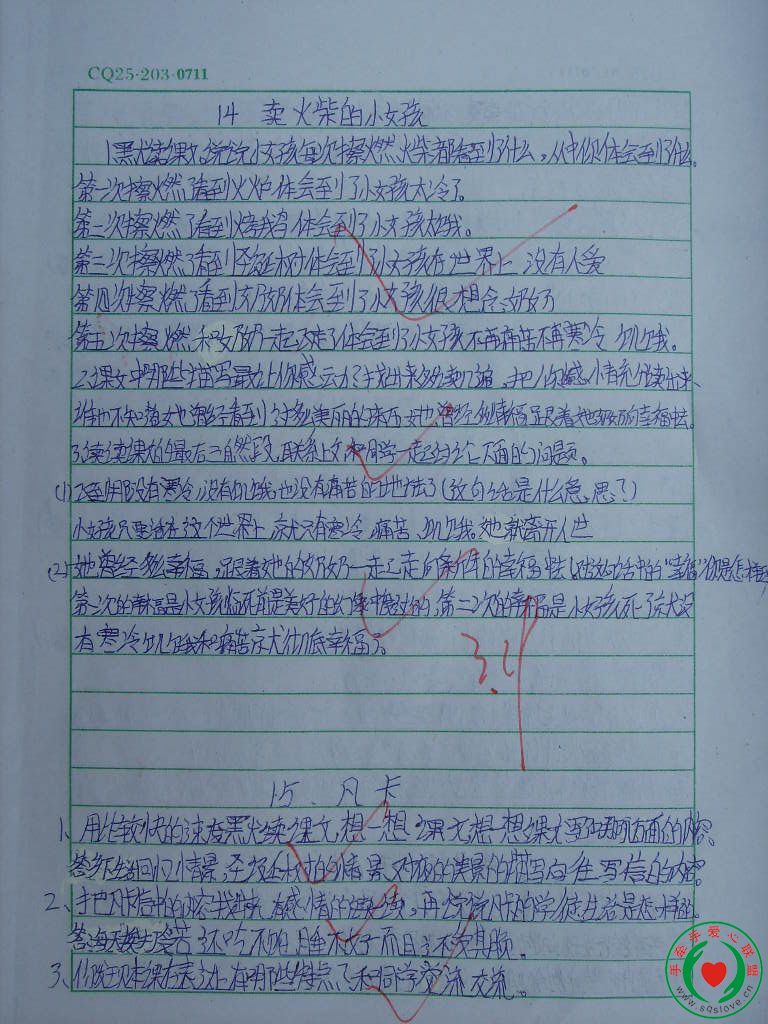 CQ25-203-0711
14 卖火柴的小女孩
1默读课文,说说小女孩每次擦燃火柴都看到了什么,从中你体会到了什么。
第一次擦燃了看到火炉体会到了小女孩太冷了。
第二次擦燃了看到烤我鸟体会到了小女孩太饿。
第三次擦燃了看到圣诞树体会到了小女孩在世界上没有人爱
第四次擦燃了看到奶奶体会到了小女孩很想念奶奶
第五次擦燃和奶奶一起飞走了体会到了小女孩不再痛苦不再寒冷饥饿。
2.课文中哪些描写最让你感动了找出来多读几遍,把你感情充分读出来、
谁也不知道她曾经看到过多么美丽的东西她曾经多么幸福跟着她奶奶向幸福中去。
3.读读课文的最后三自然段,联系上文和同学一起讨论下面的问题。
(1)飞到那没有寒冷,没有饥饿,也没有痛苦的地方去了(这句话是什么意思?)
小女孩只要活在这个世界上,就只有寒冷,痛苦、饥饿。她就离开人世
(2)她曾经多么幸福,跟着她的奶奶一起走向新年的幸福中去(这句话中的"幸福"你是怎样理
第一次的幸福是小女孩临死前是美好的幻象中度过的,第二次的幸福是小女孩死了就没
有寒冷饥饿和痛苦就彻底幸福了。
3.4
15、凡卡
1、用比较快的速度默读课文,想一想课文想一想课文写了哪两方面的内容。
2、把凡卡信中的内容找出来,有感情的读一读,再说说凡卡的学徒生活是怎样的。
3、你发现本课在表达上有哪些特点?和同学交流交流。
手牵手爱心联盟
www.sqslove.cn